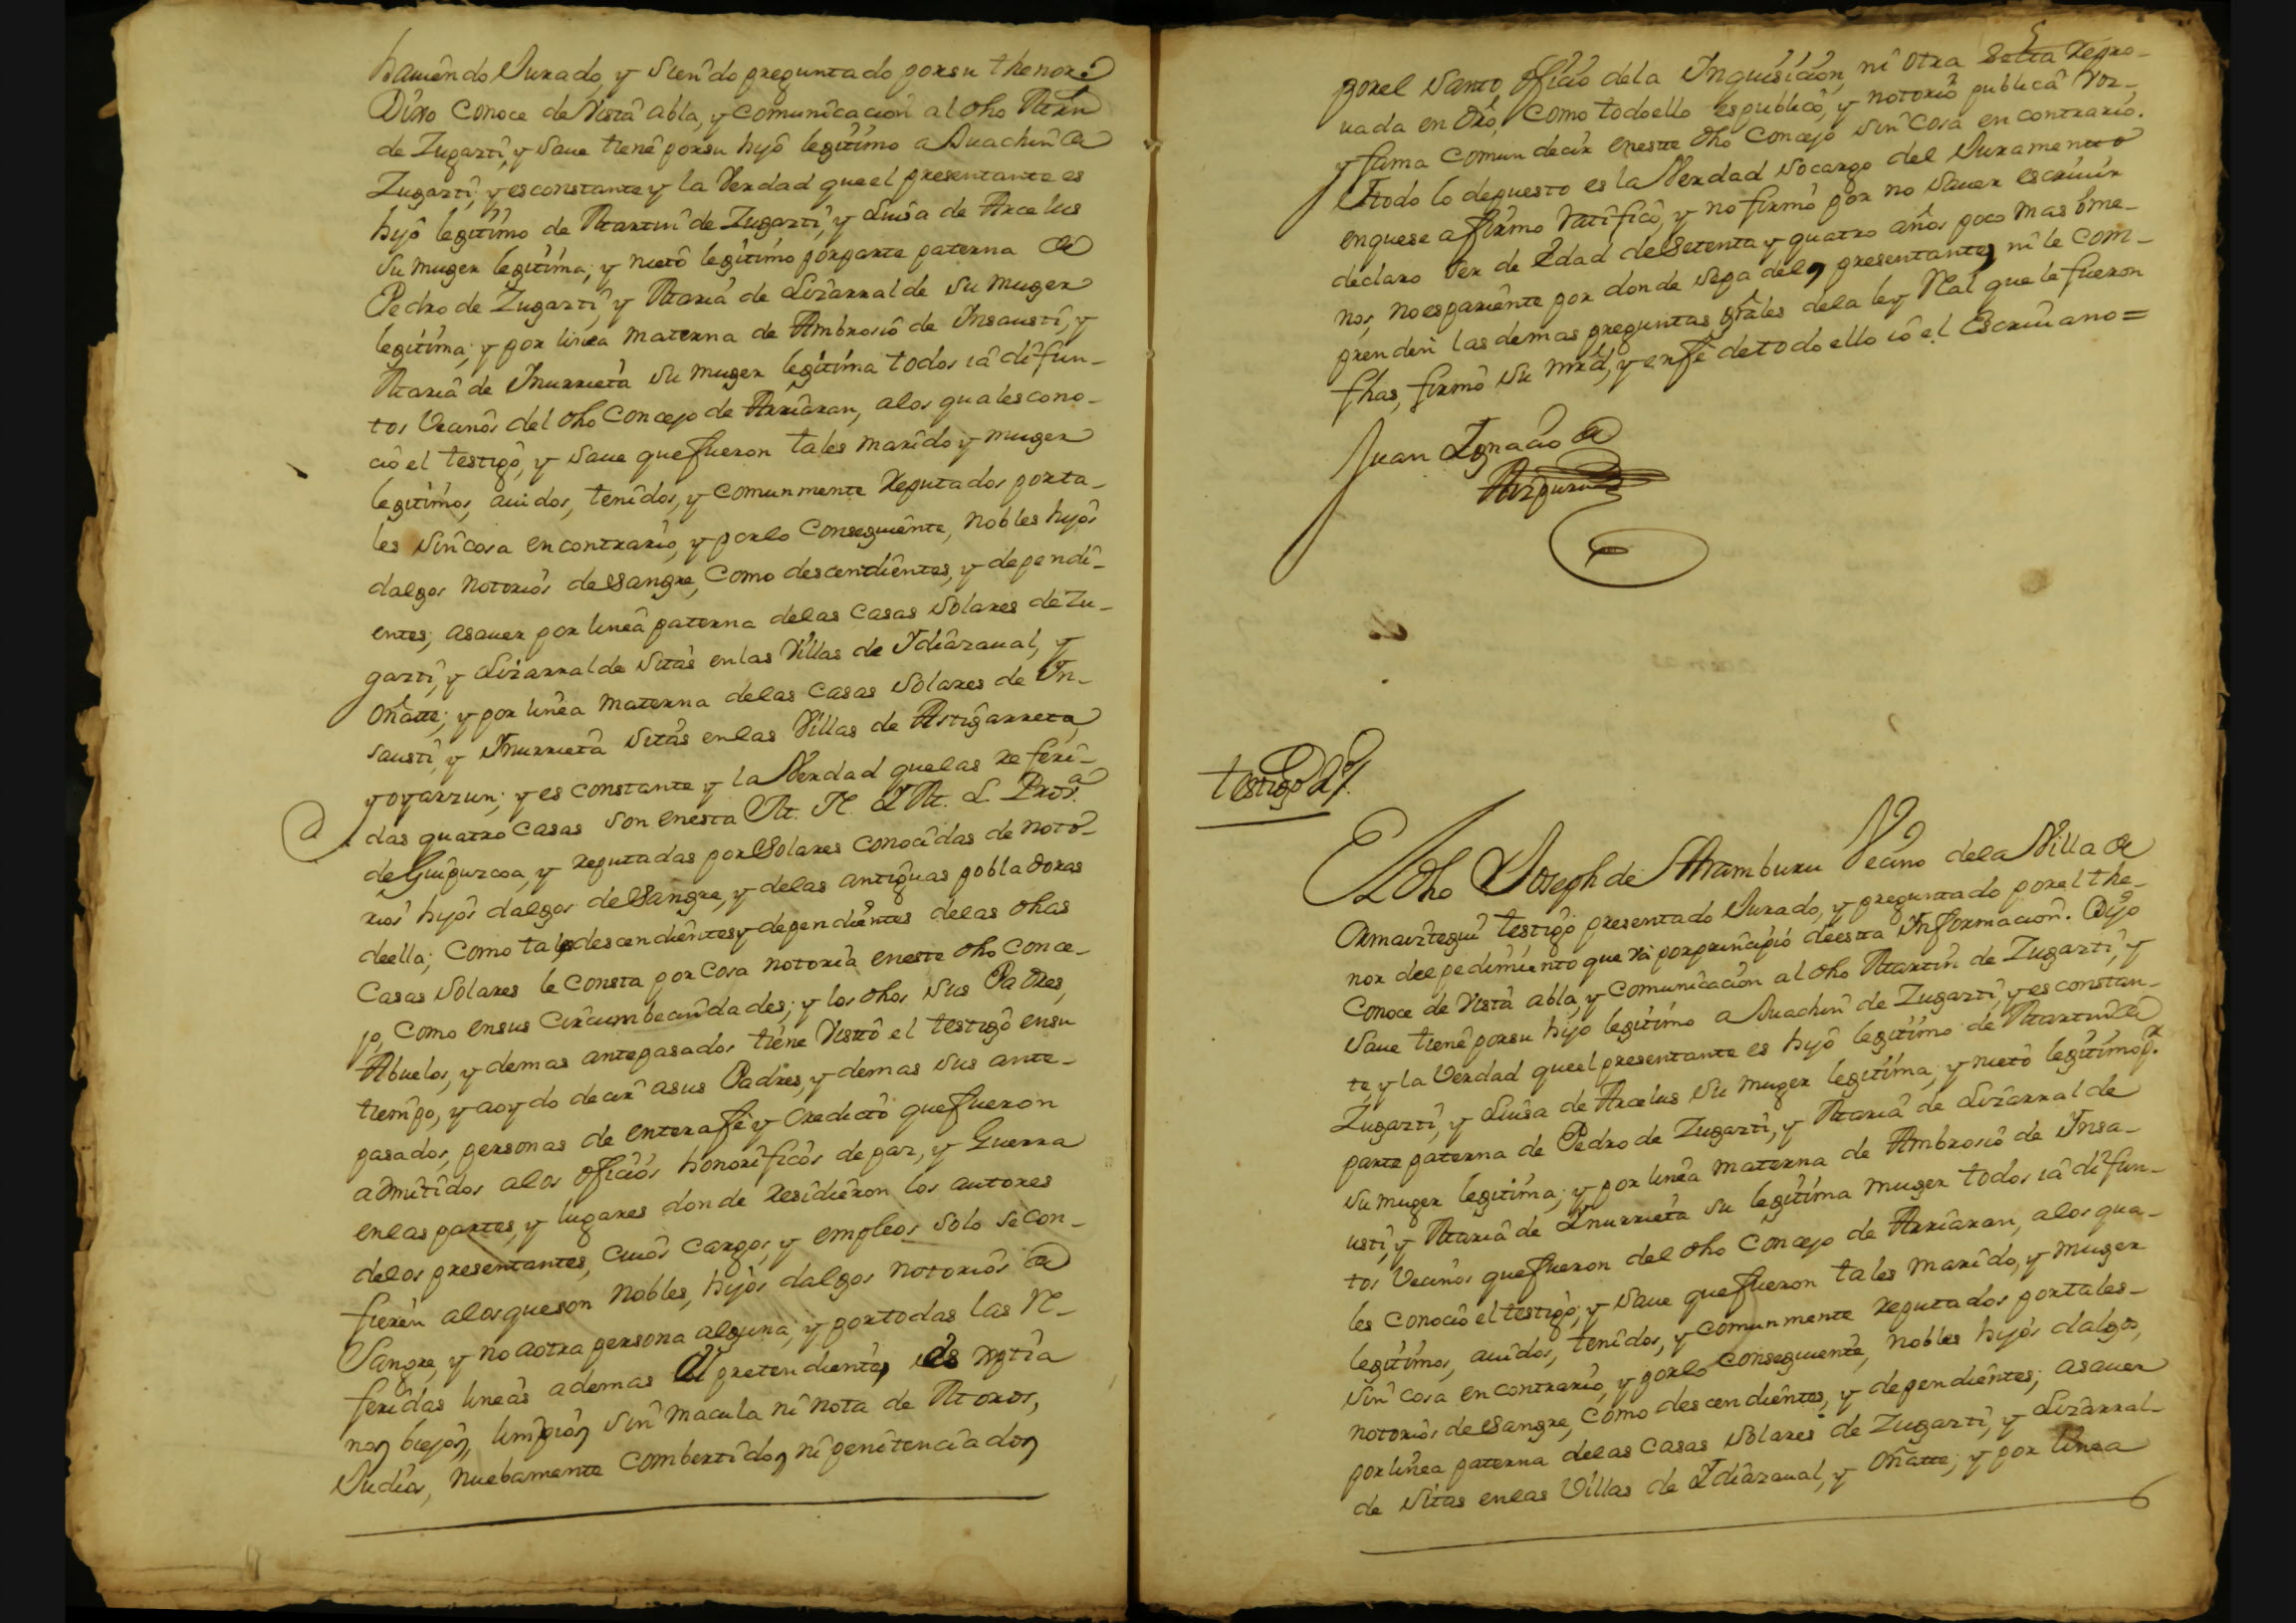 hauiendo Jurado, y siendo preguntado por su thenor:
Dixo conoce de Vista abla, y comunicacion al dho Mrn
de Zugarti, y Saue tiene por su hijo legitimo a Juachin de
Zugarti; y es constante y la Verdad que el presentante es
hijo legitimo de Martin de Zugarti, y Luisa de Arcelus
su muger legitima, y nieto legitimo por parte paterna de
Pedro de Zugarti, y Maria de Lizarralde su muger
legitima; y por linea materna de Ambrosio de Insausti, y
Maria de Inurrieta su muger legitima todos ia difun-
tos Vecinos del dho Concejo de Arriaran, a los quales cono-
cio el testigo, y Saue que fueron tales marido y muger
legitimos, auidos, tenidos, y comunmente Reputados por ta-
les sin cosa en contrario, y por lo Conseguiente, nobles hijos
dalgos notorios de sangre, como descendientes, y dependi-
entes; asauer por linea paterna de las Casas Solares de Zu-
garti, y Lizarralde sitas en las Villas de Idiazaual, y
Oñatte; y por linea materna de las Casas Solares de In-
sausti, y Inurrieta sitas en las Villas de Astigarreta,
y oyarzun; y es constante y la Verdad que las referi-
das quatro Casas son en esta M. N. Y M. L Prova.
de Guipuzcoa, y Reputadas por Solares conocidas de noto-
rios hijos dalgos de Sangre, y de las antiguas pobladoras
de ella; Como tal descendientes y dependientes de las dhas
Casas Solares le Consta por Cosa notoria en este dho Conce-
jo, como en sus Circumbecindades; y los dhos sus Padres,
Abuelos, y demas antepasados tiene Visto el testigo en su
tiempo, y a oydo decir a sus Padres, y demas sus ante-
pasados, personas de entera fe y Credicto que fueron
admitidos a los oficios honorificos de paz, y Guerra
en las partes, y lugares donde Residieron los autores
de los presentantes, cuios cargos, y empleos solo se con-
fieren a los que son Nobles, hijos dalgos notorios de
Sangre, y no a otra persona alguna; y por todas las R-
feridas lineas ademas el pretendiente, es xptia
nos biejos, limpios sin macula ni nota de Moros,
Judios, nuebamente combertidos ni penitenciados
por el Santo Oficio de la Inquisicion, ni otra Secta Repro-
uada en dro, Como todo ello es publico, y notorio publica Voz,
y fama comun decir en este dho Concejo sin Cosa en contrario.
Y todo lo depuesto es la Verdad socargo del Juramento
en que se afirmo Ratifico, y no firmo por no Sauer escriuir
declaro ser de Edad de Setenta y quatro años poco mas ôme-
nos, no es pariente por donde sepa del presentante, ni le com-
prenden las demas preguntas grales de la ley Ral que le fueron
fhas, firmo Su mrd, y en fe de todo ello io el Escriuano=
Juan Ignacio de
Aizpuru
testigo 2º.
El dho Joseph de Aramburu Vecino de la Villa de
Ormaiztegui testigo presentado Jurado, y preguntado por el the-
nor del pedimiento que va por principio de esta Informacion. Dijo
Conoce de Vista abla, y Comunicacion al dho Martin de Zugarti, y
Saue tiene por su hijo legitimo a Juachin de Zugarti, y es constan-
te, y la Verdad que el presentante es hijo legitimo de Martin de
Zugarti, y Luisa de Arcelus su muger legitima, y nieto legitimo pr.
parte paterna de Pedro de Zugarti, y Maria de Lizarralde
su muger legitima; y por linea materna de Ambrosio de Insa-
usti, y Maria de Inurrieta su legitima muger todos ia difun-
tos Vecinos que fueron del dho Concejo de Arriaran, a los qua-
les conocio el testigo; y Saue que fueron tales marido, y muger
legitimos, auidos, tenidos, y comunmente Reputados por tales-
sin cosa en contrario, y por lo Conseguiente, nobles hijos dalgos,
notorios de Sangre, como descendientes, y dependientes; asauer
por linea paterna de las Casas Solares de Zugarti, y Lizarral-
de sitas en las Villas de Idiazaual, y Oñatte; y por linea